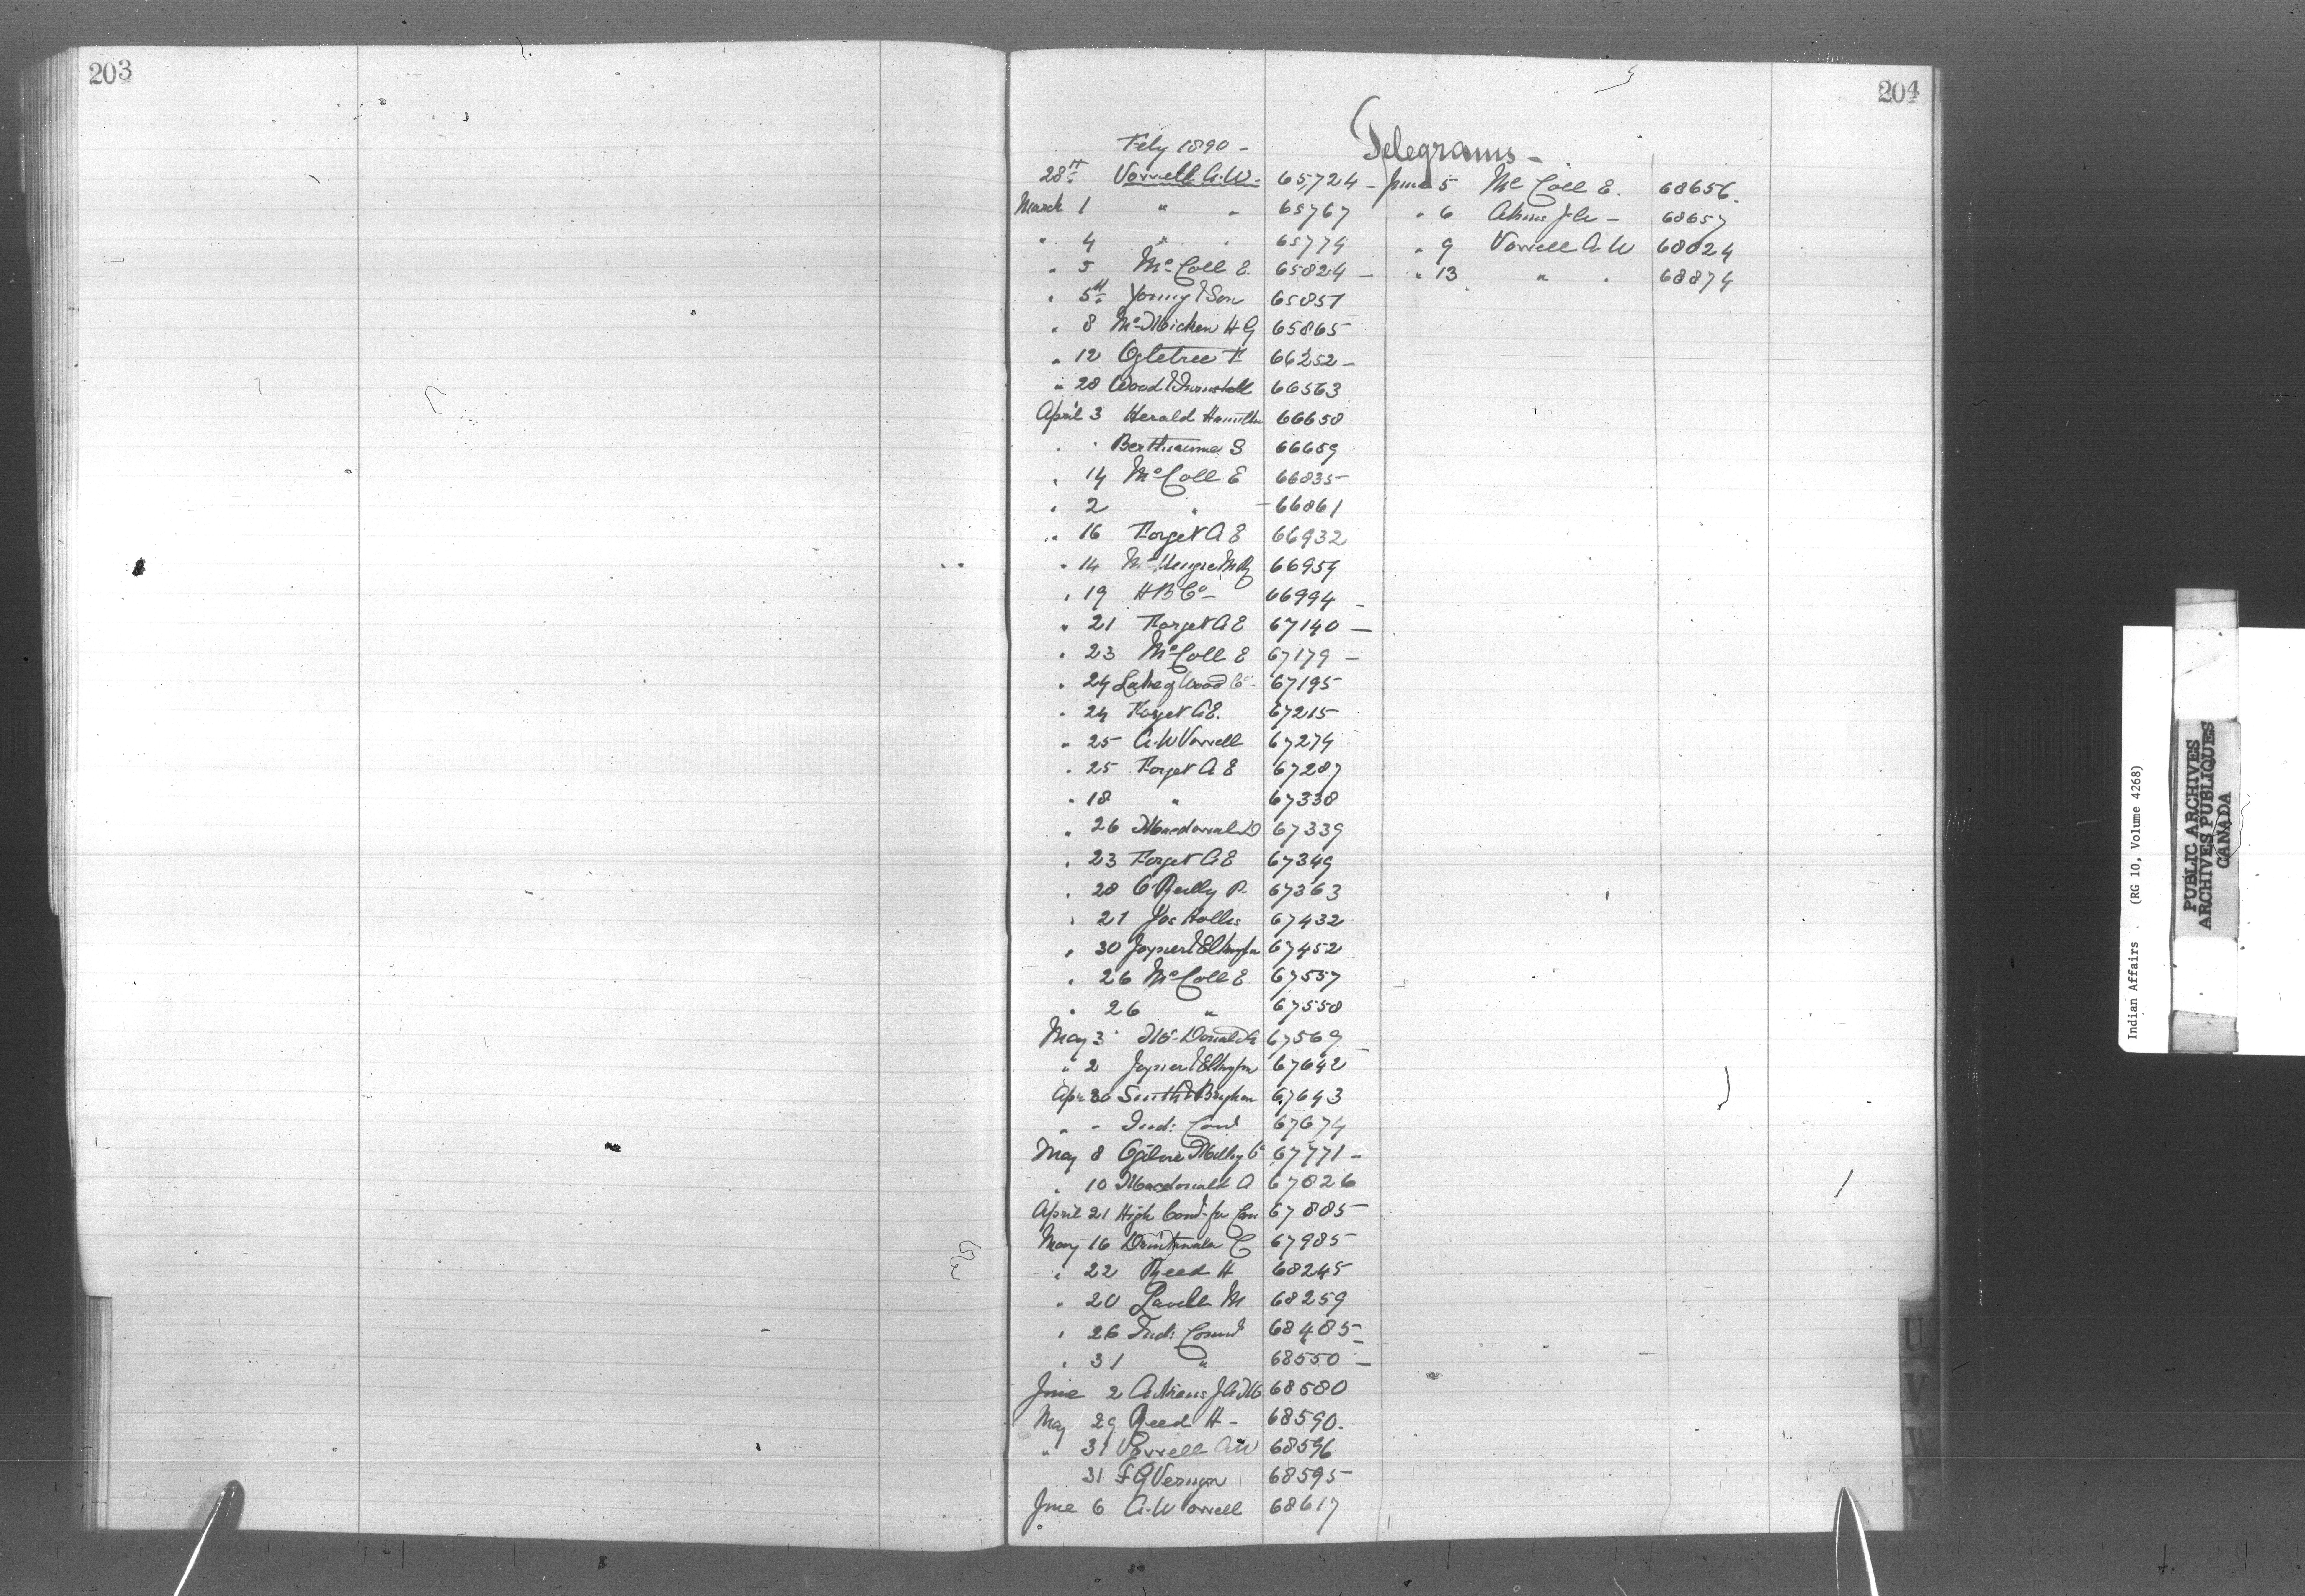 203
204
Feby 1890 -
Telegrams -
28th Vowell A.W. - 65724 -
March 1 " " 65767
" 4 " " 65774
" 5 McColl E. 65824 -
" 5th Young & Son 65851
" 8 McMicken H G 65865
" 12 Ogletree F 66252 -
" 28 Wood 66563
April 3 Herald Hamilton 66658
" " Berthiaume S 66659
" 14 McColl E 66835
" 2 " 66861
" 16 Forget A E 66932
" 14 66959
" 19 H B Co - 66994 -
" 21 Forget A E 67140 -
" 23 McColl E 67179 -
" 24 Lake of Wood Co. 67195
" 24 Forget A E. 67215
" 25 A.W Vowell 67274
" 25 Forget A E 67287
" 18 " 67338
" 26 Macdonald D 67339
" 23 Forget A E 67349
" 28 O'Reilly P. 67363
" 21 Jos Hollis 67432
" 30 Joyner & Elkington 67452
" 26 McColl E 67557
" 26 " 67558
May 3 McDonald A 67569
" 2 Joyner & Elkington 67642
Apr 30 Smith & Brigham 67643
" " Ind: Com 67674
May 8 Ogilvie Milling Co 67771 -
" 10 Macdonald A 67826
April 21 High Comr for Can 67885
May 16 Drinkwater C 67985
" 22 Reed H 68245
" 20 Lavell M 68259
" 26 Ind: Comr 68485 -
" 31 " 68550 -
June 2 68580
May 29 Reed H - 68590.
" 31 Vowell A W 68596
31 F G Vernon 68595
June 6 A.W Vowell 68617
June 5 McColl E. 68656.
" 6 68657
" 9 Vowell A W 68824
" 13 " " 68874
U
V
W
Y
Indian Affairs (RG 10, Volume 4268)
PUBLIC ARCHIVES
ARCHIVES PUBLIQUES
CANADA